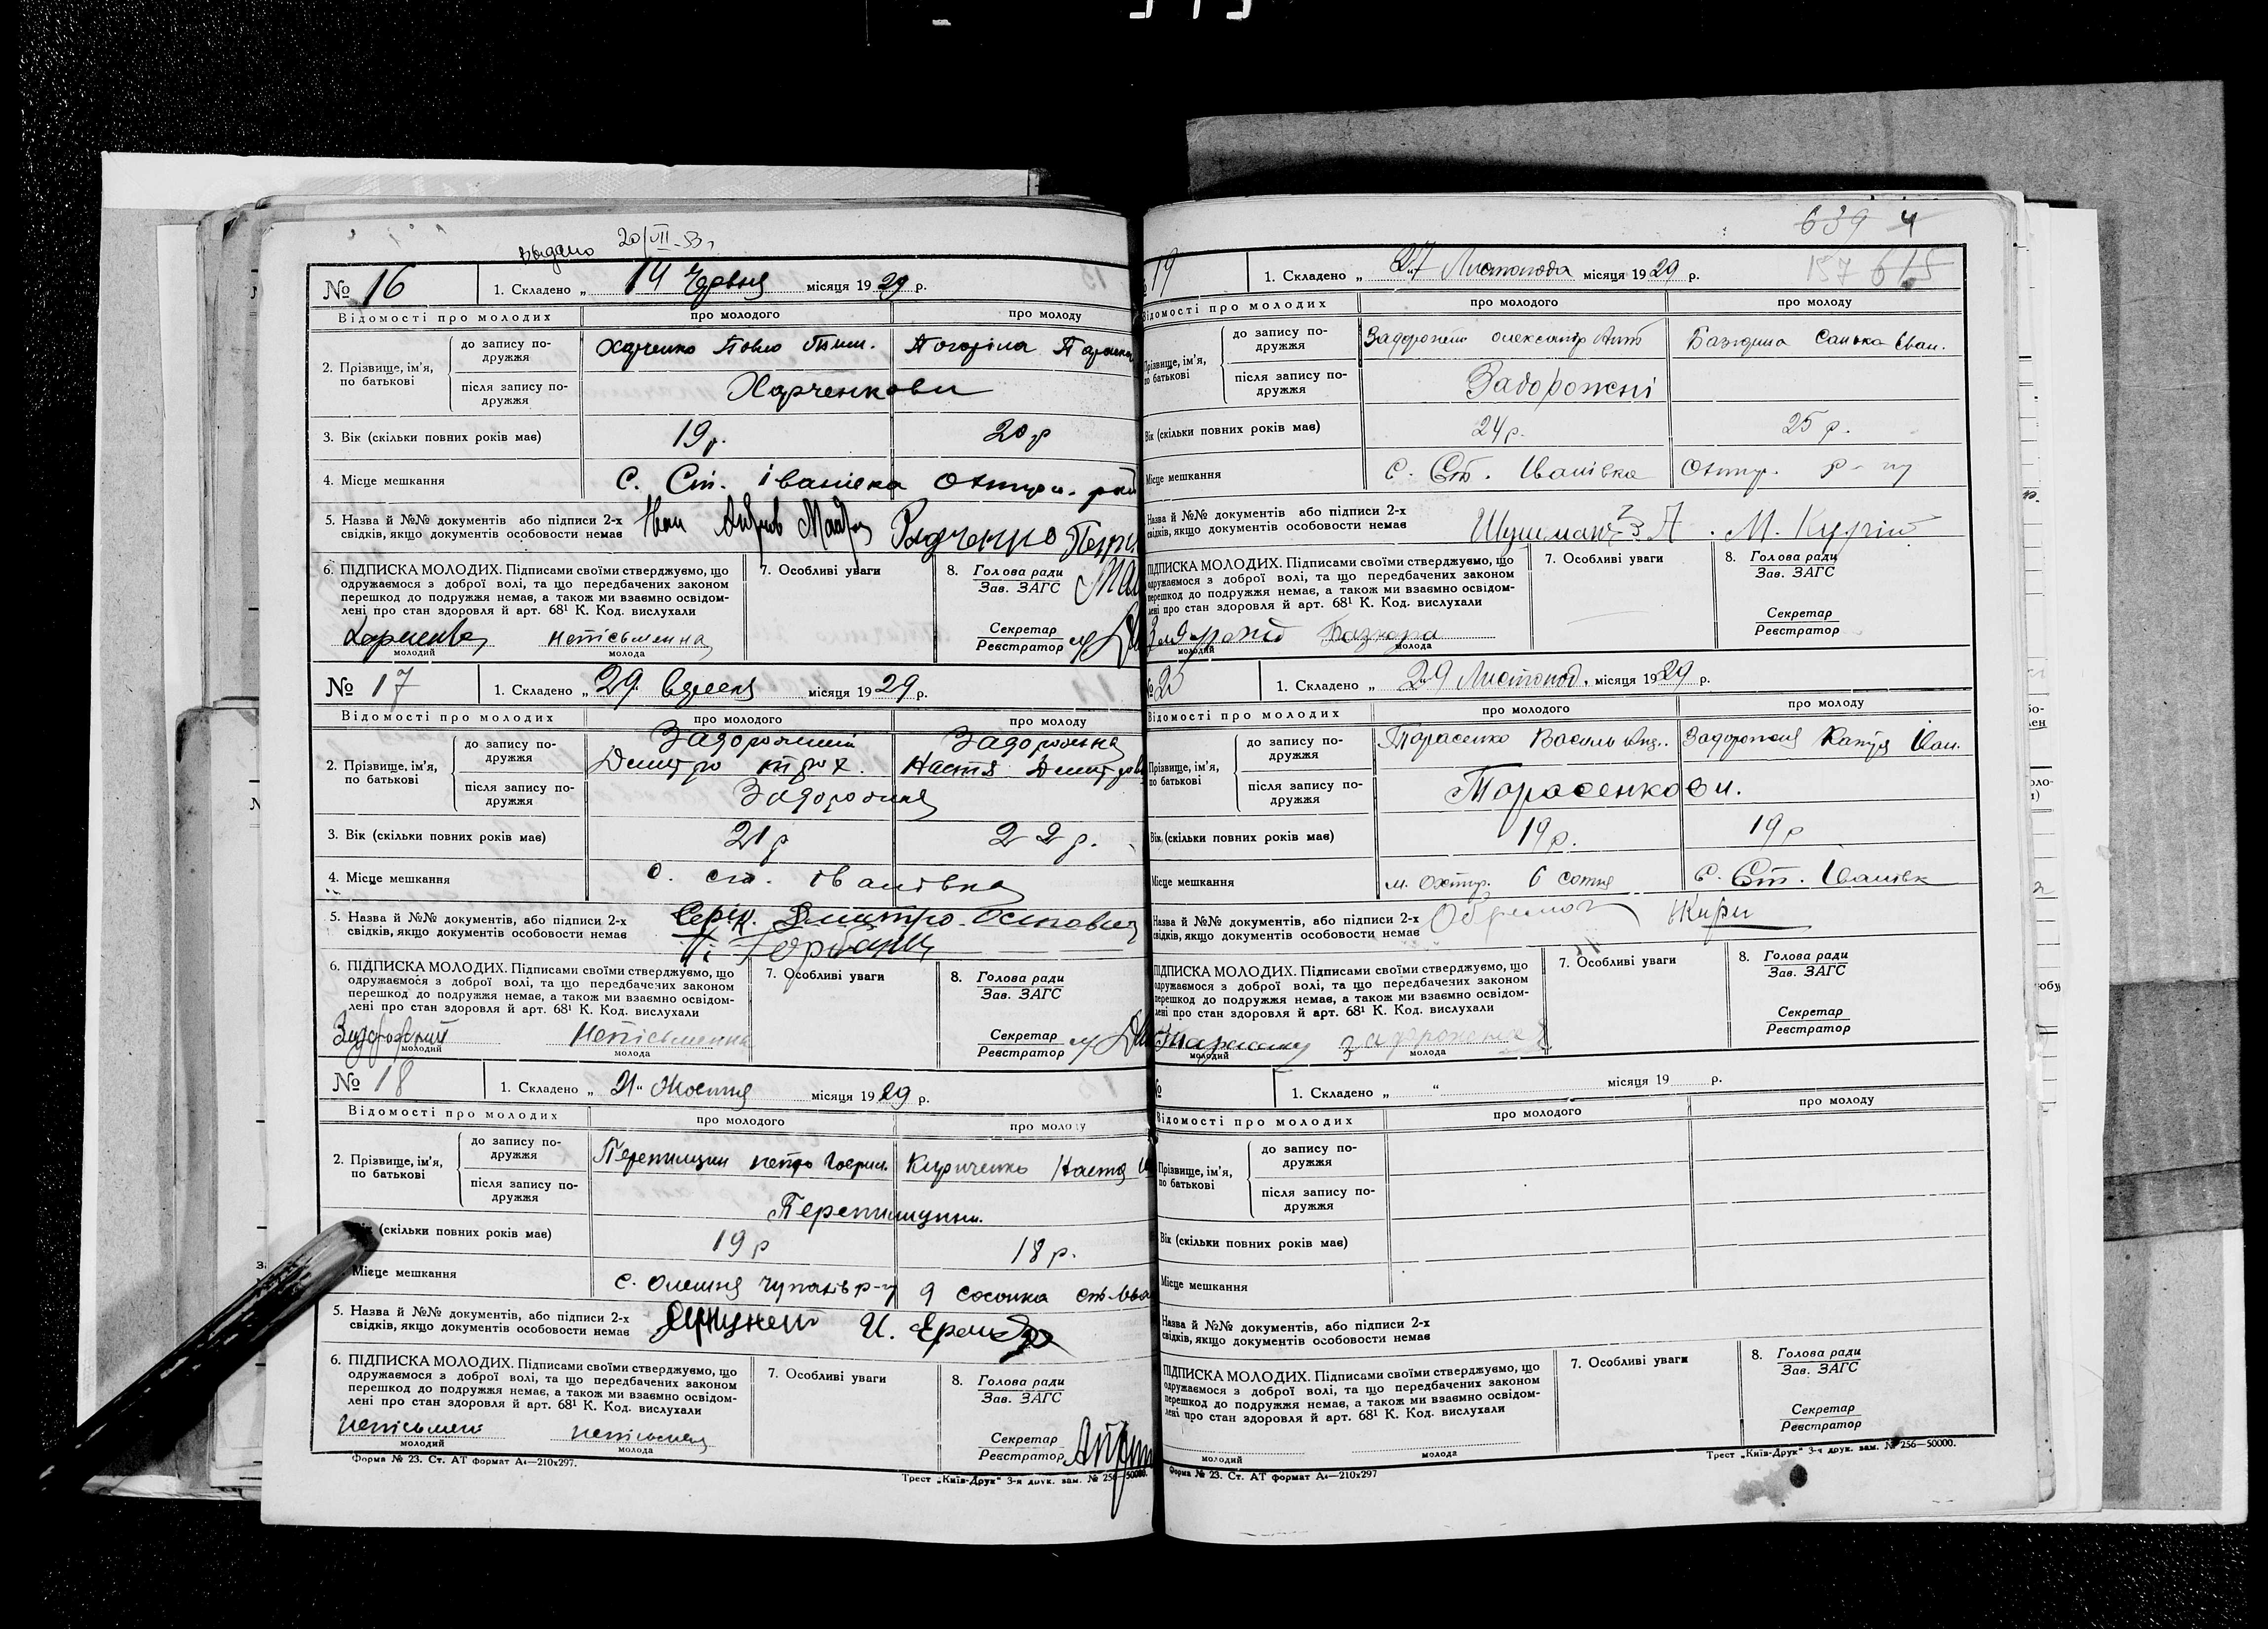 видано 20/VII-53 г
№ 16
1. Складено „ 14 Червня місяця 1929 р.
Відомості про молодих
про молодого
про молоду
2. Прізвище, ім'я, по батькові
до запису по-
дружжя
Харченко Павло
Погоріла
після запису по-
дружжя
Харченкови
3. Вік (скільки повних років має)
19 р.
20 р
4. Місце мешкання
с. Ст. Іванівка Охтирк. рай
5. Назва й №№ документів або підписи 2-х
свідків, якщо документів особовости немає
Радченко Петр
6. ПІДПИСКА МОЛОДИХ. Підписами своїми стверджуємо, що
одружаємося з доброї волі, та що передбачених законом
перешкод до подружжя немає, а також ми взаємно освідом-
лені про стан здоровля й арт. 68¹ К. Код. вислухали
неписьменна
молодий
молода
7. Особливі уваги
8. Голова ради
Зав. ЗАГС
Секретар
Реєстратор
№ 17
1. Складено „ 29 вересня місяця 1929 р.
Відомості про молодих
про молодого
про молоду
2. Прізвище, ім'я,
по батькові
до запису по-
дружжя
Задорожний
Дмитро троx.
Задорожна
Настя Дмитров
після запису по-
дружжя
Задорожня
3. Вік (скільки повних років має)
21 р
22 р.
4. Місце мешкання
с. ст. іванівка
5. Назва й №№ документів, або підписи 2-х
свідків, якщо документів особовости немає
Дмитро Осипович
Горбань
6. ПІДПИСКА МОЛОДИХ. Підписами своїми стверджуємо, що
одружаємося з доброї волі, та що передбачених законом
перешкод до подружжя немає, а також ми взаємно освідом-
лені про стан здоровля й арт. 68¹ К. Код. вислухали
Задорожний
Неписьменна
молодий
молода
7. Особливі уваги
8. Голова ради
Зав. ЗАГС
Секретар
Реєстратор
№ 18
1. Складено „ 21 “ Жовтня місяця 1929 р.
Відомості про молодих
про молодого
про молоду
2. Прізвище, ім'я,
по батькові
до запису по-
дружжя
петро Гаврил.
Кириченко Настя
після запису по-
дружжя
Вік (скільки повних років має)
19 р
18 р.
Місце мешкання
с. Олешня Чупахів р-ну
9 сосонка ст. Іва
5. Назва й №№ документів, або підписи 2-х
свідків, якщо документів особовости немає
6. ПІДПИСКА МОЛОДИХ. Підписами своїми стверджуємо, що
одружаємося з доброї волі, та що передбачених законом
перешкод до подружжя немає, а також ми взаємно освідом-
лені про стан здоровля й арт. 68¹ К. Код. вислухали
неписьмений
неписьмена
молодий
молода
7. Особливі уваги
8. Голова ради
Зав. ЗАГС
Секретар
Реєстратор
Форма № 23. Ст. АТ формат А4—210х297.
Трест „Київ-Друк“ 3-я друк. зам. № 256—50000.
639 4
157 615
19
1. Складено „ 27 Листопада місяця 1929 р.
Відомості про молодих
про молодого
про молоду
Прізвище, ім'я,
по батькові
до запису по-
дружжя
Задорожний олександр Ант
Санька Іван.
після запису по-
дружжя
Задорожні
Вік (скільки повних років має)
24 р.
25 р.
Місце мешкання
с. Ст. Іванівка
Охтир. р-ну
Назва й №№ документів або підписи 2-х
свідків, якщо документів особовости немає
ПІДПИСКА МОЛОДИХ. Підписами своїми стверджуємо, що
одружаємося з доброї волі, та що передбачених законом
перешкод до подружжя немає, а також ми взаємно освідом-
лені про стан здоровля й арт. 68¹ К. Код. вислухали
молодий
молода
7. Особливі уваги
8. Голова ради
Зав. ЗАГС
Секретар
Реєстратор
№ 20
1. Складено „ 29 Листопад. місяця 1929 р.
Відомості про молодих
про молодого
про молоду
Прізвище, ім'я,
по батькові
до запису по-
дружжя
Тарасенко Василь Анд.
Задорожня Катря Іван.
після запису по-
дружжя
Тарасенкови.
Вік (скільки повних років має)
19 р.
19 р
Місце мешкання
м. Охтир. 6 сотня
С. Ст. Іванівк
Назва й №№ документів, або підписи 2-х
свідків, якщо документів особовости немає
ПІДПИСКА МОЛОДИХ. Підписами своїми стверджуємо, що
одружаємося з доброї волі, та що передбачених законом
перешкод до подружжя немає, а також ми взаємно освідом-
лені про стан здоровля й арт. 68¹ К. Код. вислухали
молодий
молода
7. Особливі уваги
8. Голова ради
Зав. ЗАГС
Секретар
Реєстратор
№
1. Складено „ “ місяця 19 р.
Відомості про молодих
про молодого
про молоду
Прізвище, ім'я,
по батькові
до запису по-
дружжя
після запису по-
дружжя
Вік (скільки повних років має)
Місце мешкання
Назва й №№ документів, або підписи 2-х
свідків, якщо документів особовости немає
ПІДПИСКА МОЛОДИХ. Підписами своїми стверджуємо, що
одружаємося з доброї волі, та що передбачених законом
перешкод до подружжя немає, а також ми взаємно освідом-
лені про стан здоровля й арт. 68¹ К. Код. вислухали
молодий
молода
7. Особливі уваги
8. Голова ради
Зав. ЗАГС
Секретар
Реєстратор
Форма № 23. Ст. АТ формат А4—210х297
Трест „Київ-Друк“ 3-я друк. зам. № 256—50000.